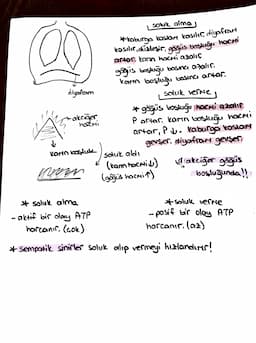 soluk alma
* kaburga kasları kasılır, diyafram
kasılır, düzleşir, göğüs boşluğu hacmi
artar. karın hacmi azalır.
göğüs boşluğu basıncı azalır.
karın boşluğu basıncı artar.
diyafram
soluk verme
* göğüs boşluğu hacmi azalır
P artar. karın boşluğu hacmi
artar, P ↓. kaburga kasları
gevşer. diyafram gevşer.
akciğer
hacmi
karın boşluğu
soluk aldı
(karın hacmi ↓)
(göğüs hacmi ↑)
akciğer göğüs
boşluğunda!!
* soluk alma
- aktif bir olay ATP
harcanır. (çok)
* soluk verme
- pasif bir olay ATP
harcanır. (az)
* sempatik sinirler soluk alıp vermeyi hızlandırır!